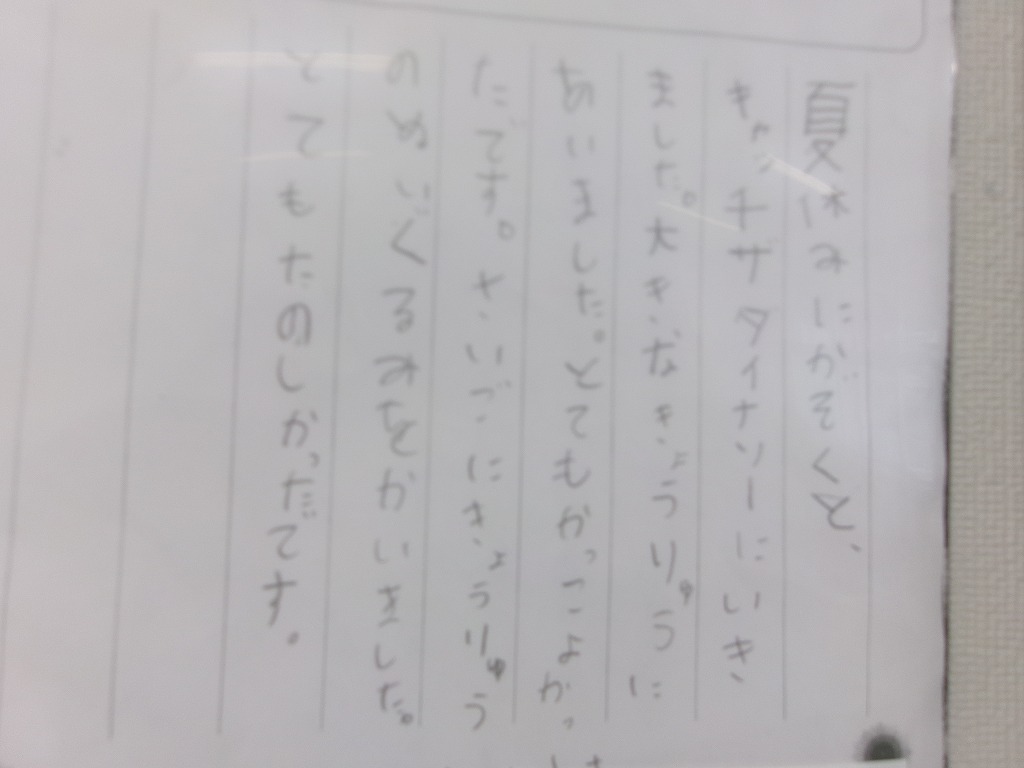 夏休みにかぞくと、
キャッチザダイナソーにいき
ました。大きなきょうりゅうに
あいました。とてもかっこよかっ
たです。さいごにきょうりゅう
のぬいぐるみをかいました。
とてもたのしかったです。